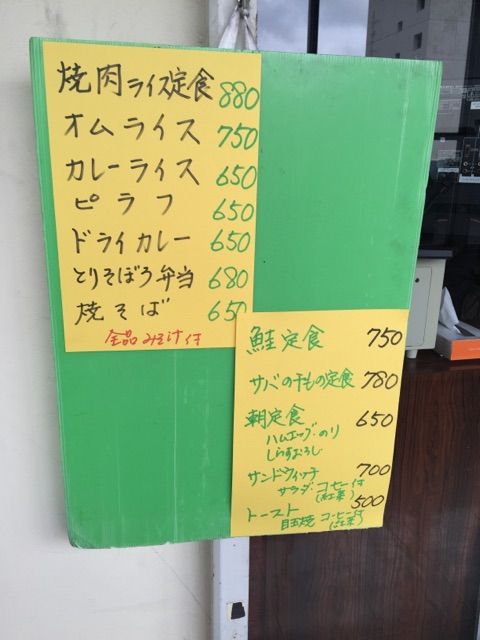 焼肉ライス定食 880
オムライス 750
カレーライス 650
ピラフ 650
ドライカレー 650
とりそぼろ弁当 680
焼そば 650
全品みそ汁付
鮭定食 750
サバの干もの定食 780
朝定食 650
ハムエッグ・のり
しらすおろし
サンドウィッチ 700
サラダ・コーヒー付
(紅茶)
トースト 500
目玉焼 コーヒー付
(紅茶)